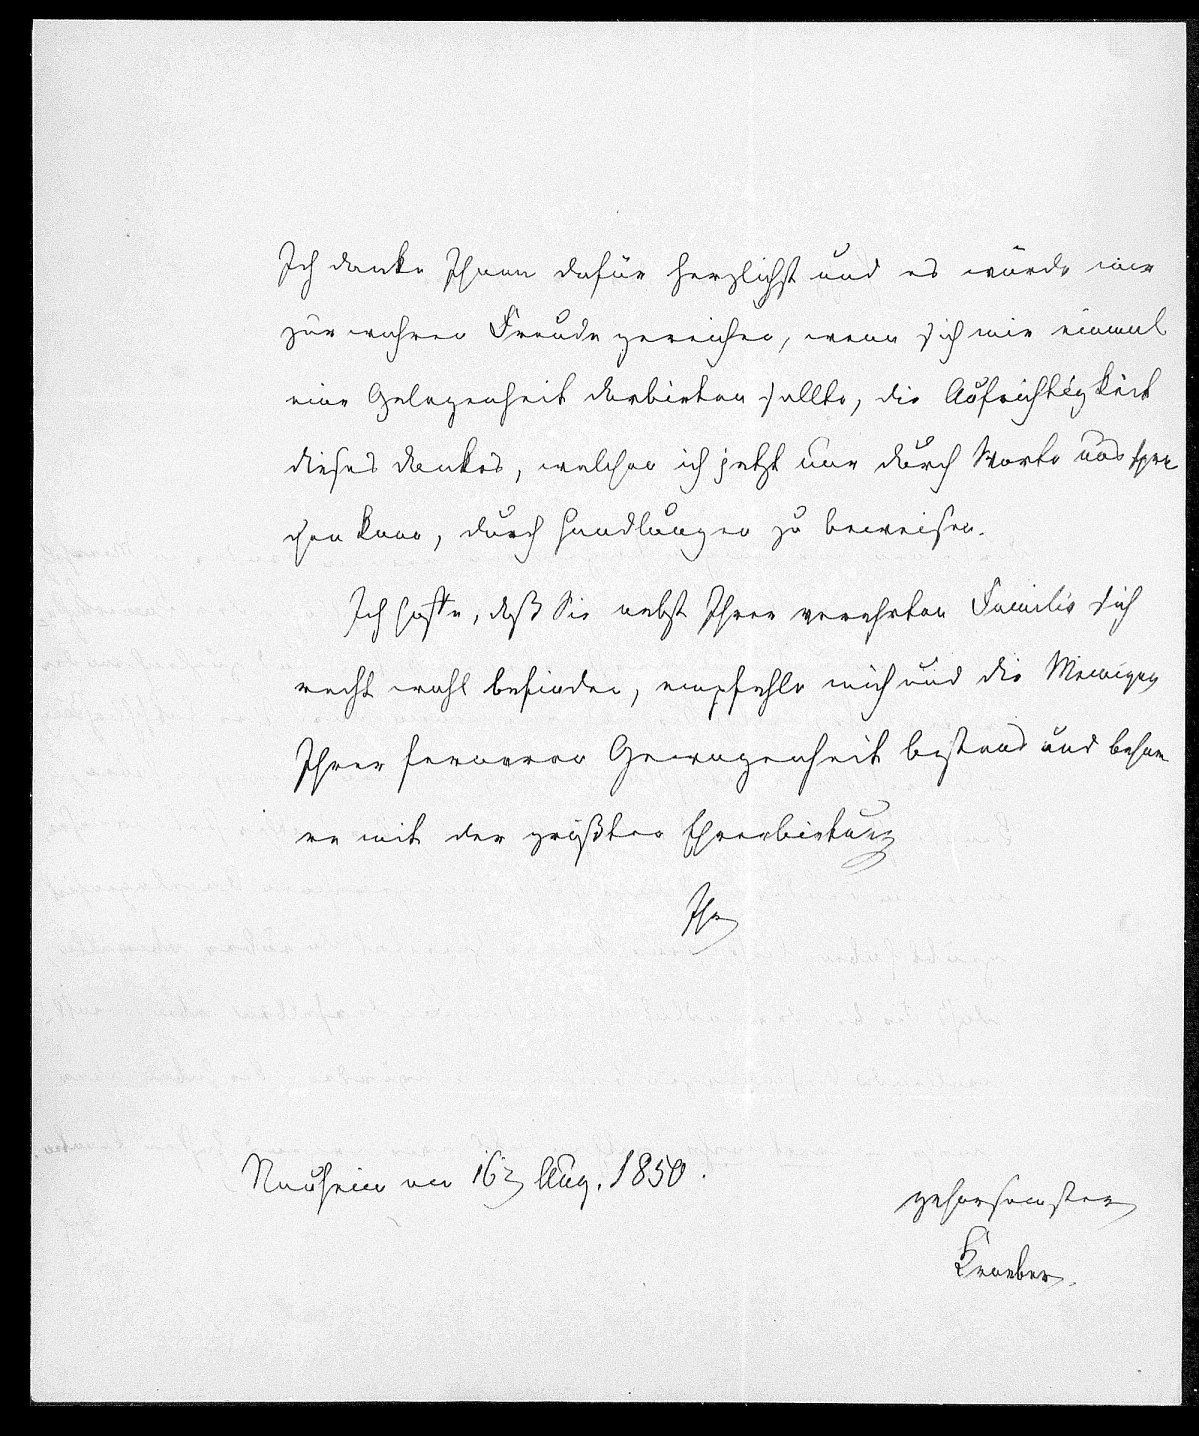 Ich danke Ihnen dafür herzlichst und es würde mir
zur wahren Freude gereichen, wenn sich mir einmal
eine Gelegenheit darbieten sollte, die Aufrichtigkeit
dieses Dankes, welchen ich jetzt nur durch Worte ausspre
chen kann, durch Handlungen zu beweisen.
Ich hoffe, daß Sie nebst Ihrer verehrten Familie sich
recht wohl befinden, empfehle mich und die Meinigen
Ihrer ferneren Gewogenheit bestens und behar
re mit der größten Ehrerbietung
Ihr
Nauheim am 16 Aug. 1850.
gehorsamster
Kraeber.